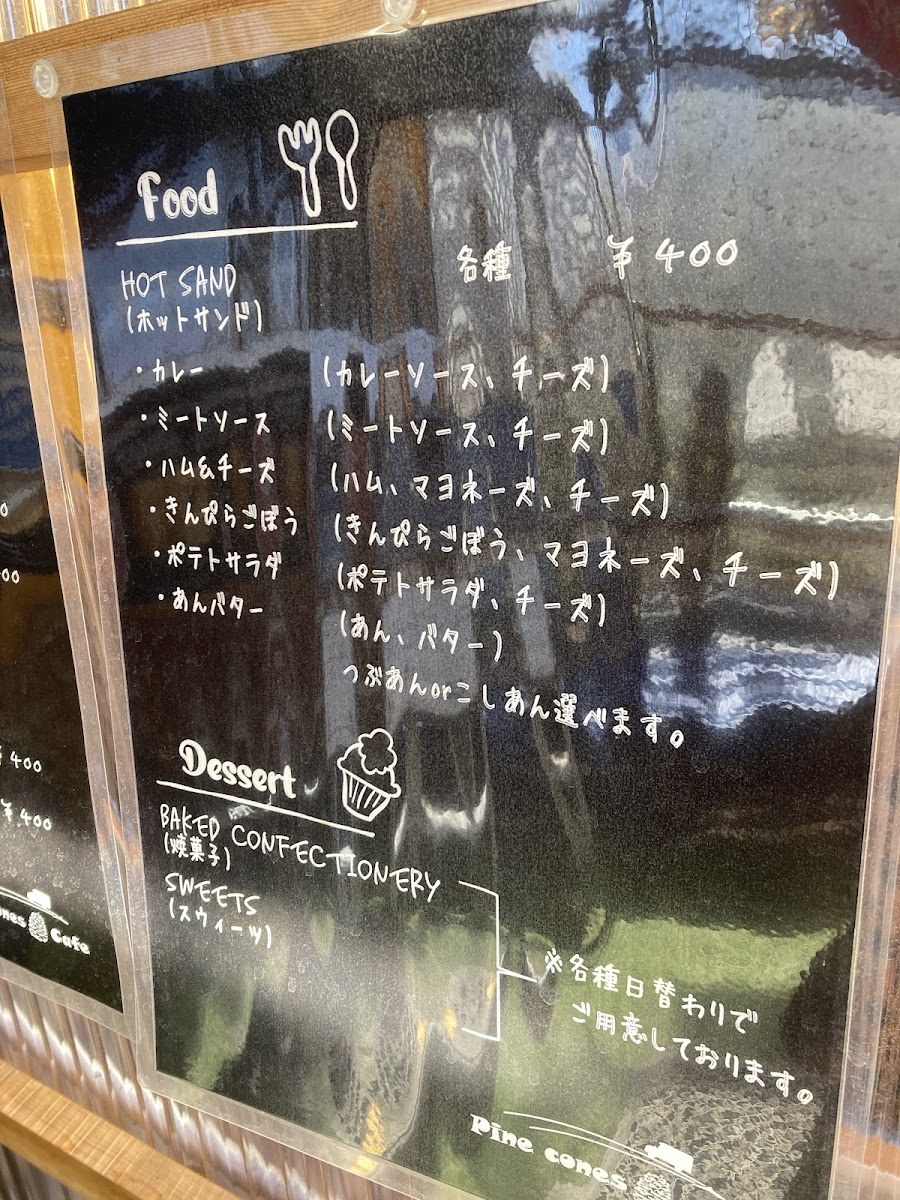 Food
HOT SAND 各種 ¥400
(ホットサンド)
・カレー (カレーソース、チーズ)
・ミートソース (ミートソース、チーズ)
・ハム&チーズ (ハム、マヨネーズ、チーズ)
・きんぴらごぼう (きんぴらごぼう、マヨネーズ、チーズ)
・ポテトサラダ (ポテトサラダ、チーズ)
・あんバター (あん、バター)
つぶあんorこしあん選べます。
Dessert
BAKED CONFECTIONERY
(焼菓子)
SWEETS
(スウィーツ)
※各種日替わりで
ご用意しております。
Pine cones
¥400
¥400
Cafe